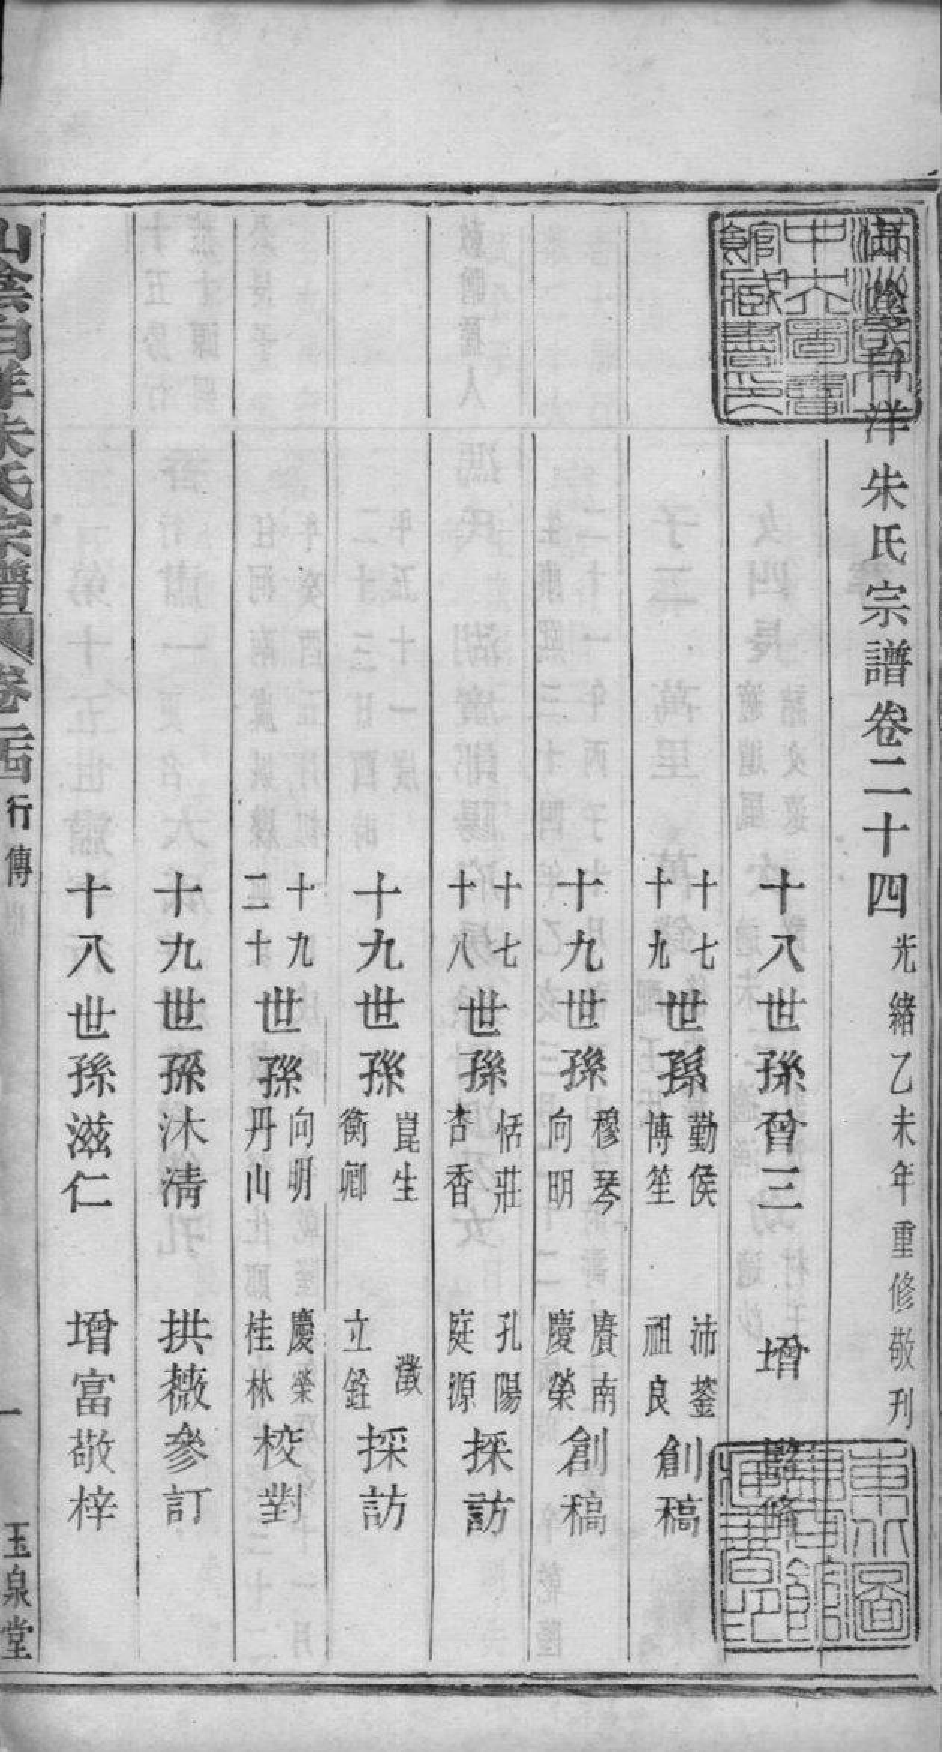 山陰白洋朱氏宗譜卷二十四 光緒乙未年重修敬刊
十八世孫曾三 增 修
十七十九世孫勤侯博笙 沛蓥祖良 創稿
十九世孫穆琴向明 賡南慶榮 創稿
十七十八世孫恬莊杏香 孔陽庭源 採訪
十九世孫崑生衡卿 瀓立銓 採訪
十九二十世孫向明丹山 慶榮桂林 校對
十九世孫沐清 拱薇參訂
十八世孫滋仁 增富敬梓
山陰白洋朱氏宗譜 卷二十四 行傳 一 玉泉堂
滿洲
中央圖書
館藏書印
東北圖
書館